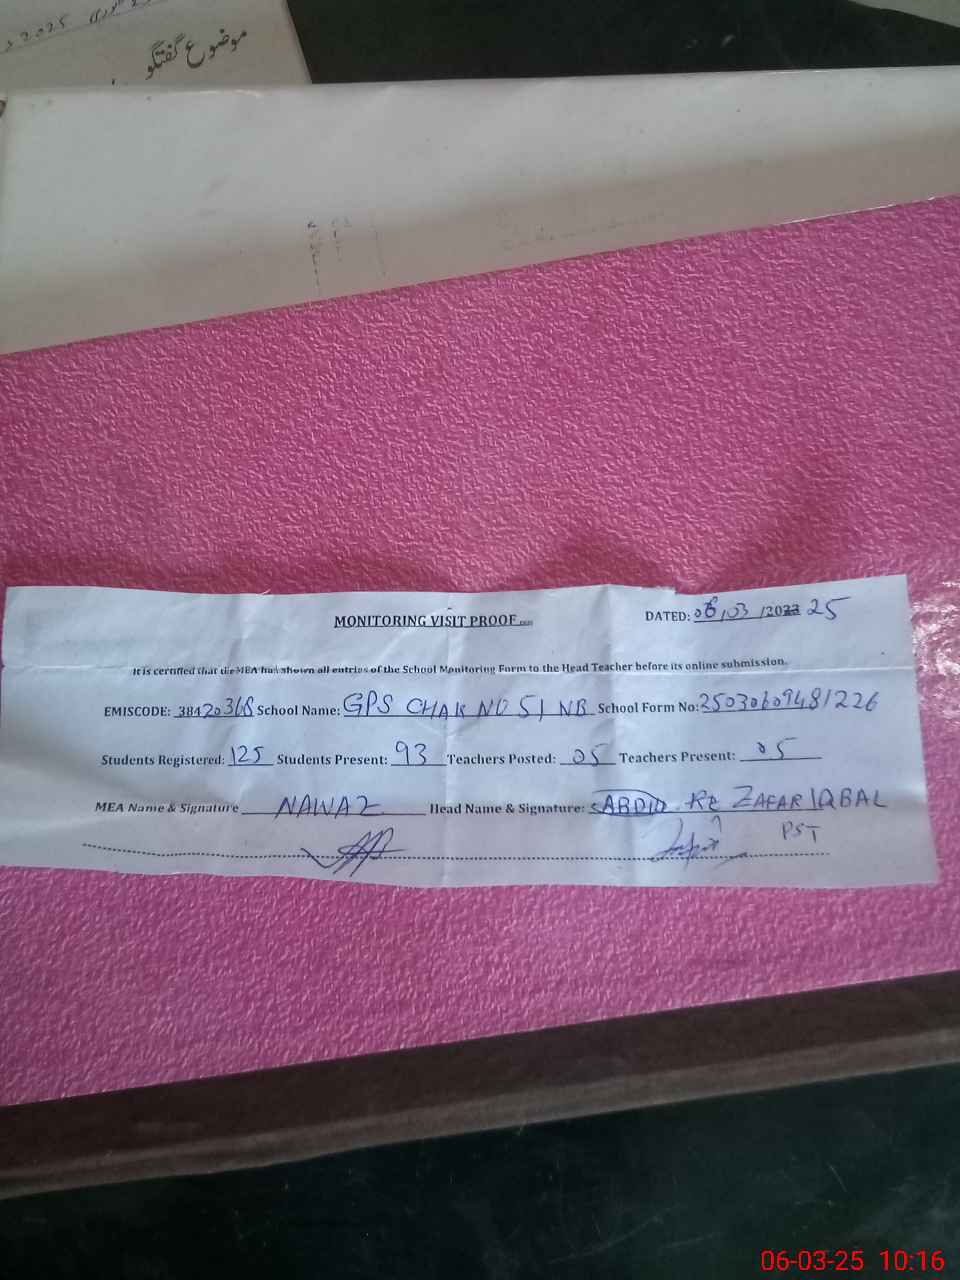 2025
موضوع گفتگو
MONITORING VISIT PROOF
DATED: 06/03/2023 25
It is certified that the MEA has shown all entries of the School Monitoring Form to the Head Teacher before its online submission.
EMISCODE: 38420368 School Name: GPS CHAK NO 51 NB School Form No: 25030609481226
Students Registered: 125 Students Present: 93 Teachers Posted: 05 Teachers Present: 05
MEA Name & Signature NAWAZ Head Name & Signature: ZAFAR IQBAL
PST
06-03-25 10:16